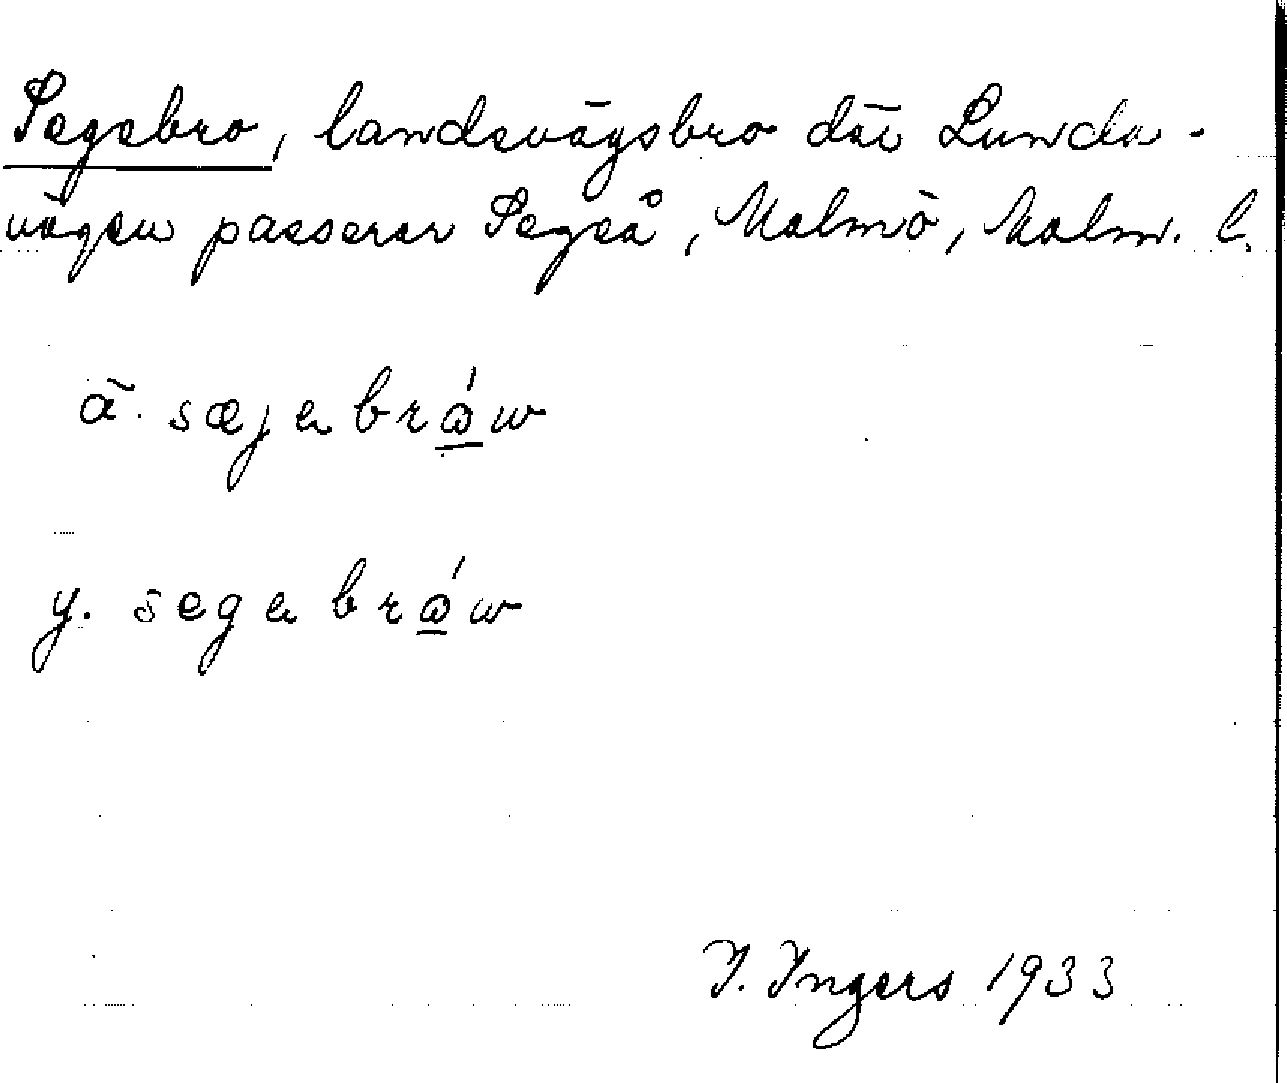 Segebro, landsvägsbro där Lunda-
vägen passerar Segeå, Malmö, Malm. l.
ä. sæjabrώw
y. segabrώw
I. Ingers 1933